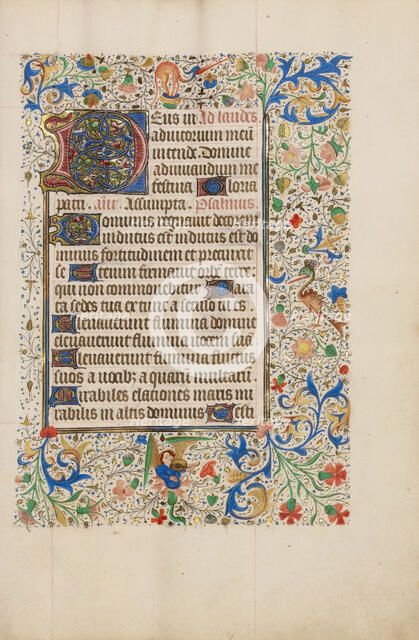 Deus in Ad laudes
adiutorium meū
intende. domine
adiuuandum me
festina Gloria
patri. añt. Assumpta. Psalmus.
Dominus regnauit decorem
indutus est indutus est do
minus fortitudinem et precinxit
se Etenim firmauit orbē terre:
qui non commouebitur Para
ta sedes tua ex tunc a seculo tu es.
Eleuauerunt flumina domine
eleuauerunt flumina uocem suā
Eleuauerunt flumina fluctus
suos a uocib; aquarū multarū
Mirabiles elationes maris mi
rabilis in altis dominus Testi